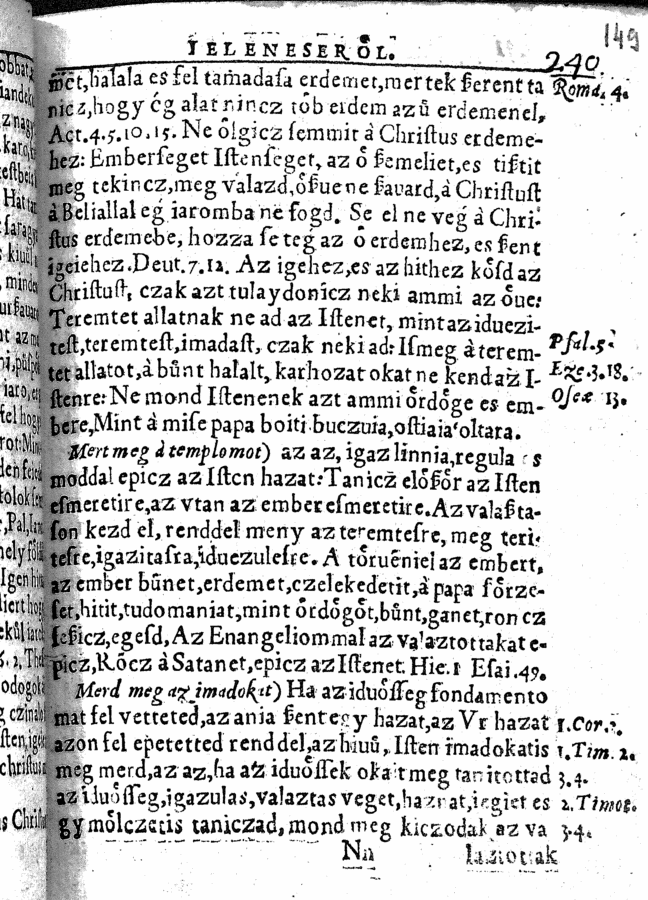 IELENESERÖL.
149
240
mét, halala es fel tamadasa erdemet, mer tek ßerent ta
nicz, hogy ég alat nincz tòb erdem azű erdemenel,
Act. 4. 5. 10. 15. Ne ôlgicz semmit à Christus erdeme-
hez: Emberseget Istenseget, az ő ßemeliet, es tißtit
meg tekincz, meg valazd, ößue ne ßauard, à Christust
à Beliallal eǵ iaromba ne fogd. Se el ne veǵ à Chri-
stus erdemebe, hozza se teǵ az ő erdemhez, es ßent
igeiehez. Deut. 7. 12. Az igehez, es az hithez kösd az
Christust, czak azt tulaydonicz neki ammi az öue:
Teremtet allatnak ne ad az Istenet, mint az iduezi-
test, teremtest, imadast, czak neki ad: Ismeg à terem-
tet allatot, à bűnt halalt, karhozat okat ne kend az I-
stenre: Ne mond Istenenek azt ammi ördöge es em-
bere, Mint à mise papa boiti buczuia, ostiaia oltara.
Mert meg à templomot) az az, igaz linnia, regula es
moddal epicz az Isten hazat: Tanicz előßör az Isten
esmeretire, az vtan az ember esmeretire. Az valaßta-
son kezd el, renddel meny az teremtesre, meg teri-
tesre, igazitasra, iduezulesre. A törueniel az embert,
az ember bűnet, erdemet, czelekedetit, à papa förze-
set, hitit, tudomaniat, mint ördögöt, bűnt, ganet, ron cz
seßicz, egesd, Az Enangeliommal az valaztottakat e-
picz, Röcz à Satanet, epicz az Istenet. Hie. 1 Esai. 49.
Merd meg az imadokit) Ha az iduösseg fondamento
mat fel vetteted, az ania ßent egy hazat, az Vr hazat
azon fel epetetted renddel, az hiuű, Isten imadokatis
meg merd, az az, ha az iduössek okait meg tanitottad
az iduösseg, igazulas, valaztas veget, haznat, iegiet es
gy mölczetis taniczad, mond meg kiczodak az va
Nn
laztottak
Roma. 4.
Psal. 5.
Eze. 3. 18.
Oseæ 13.
1. Cor. 3.
1. Tim. 2.
3. 4.
2. Timot.
3. 4.